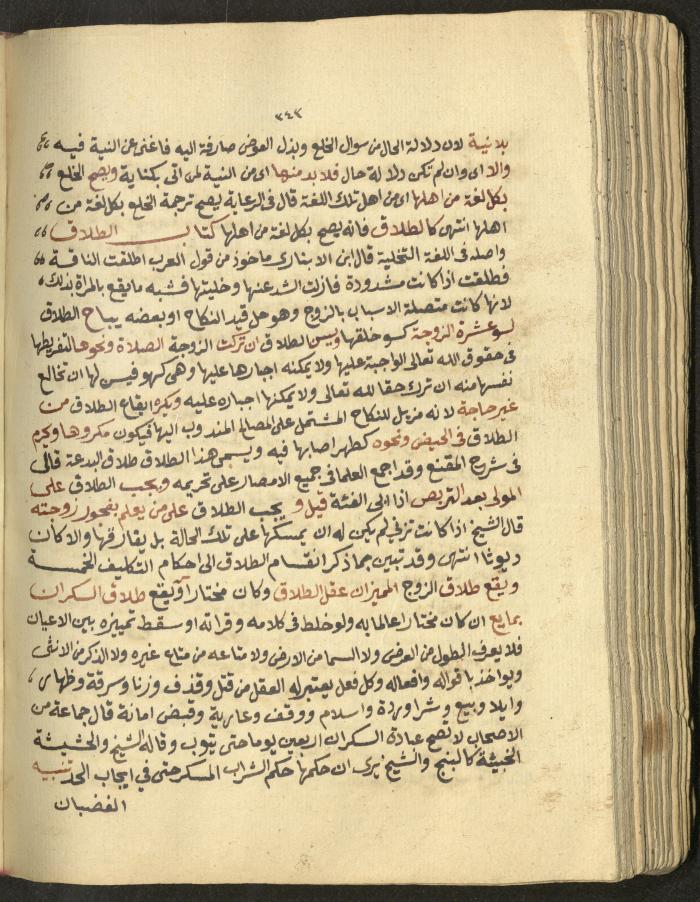 ٣٤٣
بلانية لان دلالة الحال من سوال الخلع وبذل العوض صارفة اليه فاغنى عن النية فيه
والا اى وان لم تكن دلالة حال فلا بد منها اى من النية لمن اتى بكناية ويصح الخلع
بكل لغة من اهلها اى من اهل تلك اللغة قال فى الرعاية يصح ترجمة الخلع بكل لغة من
اهلها انتهى كالطلاق فانه يصح بكل لغة من اهلها كتاب الطلاق
واصله فى اللغة التخلية قال ابن الانبارى ماخوذ من قول العرب اطلقت الناقة
فطلقت اذا كانت مشدودة فازلت الشد عنها وخليتها فشبه ما يقع بالمراة بذلك
لانها كانت متصلة الاسباب بالزوج وهو حل قيد النكاح او بعضه يباح الطلاق
لسو عشرة الزوجة كسو خلقها ويسن الطلاق ان تركت الزوجة الصلاة ونحوها لتفريطها
فى حقوق الله تعالى الواجبة عليها ولا يمكنه اجبارها عليها وهى كهو فيسن لها ان تخالع
نفسها منه ان ترك حقا لله تعالى ولا يمكنها اجباره عليه ويكره ايقاع الطلاق من
غير حاجة لانه مزيل للنكاح المشتمل على المصالح المندوب اليها فيكون مكروها ويحرم
الطلاق فى الحيض ونحوه كطهر اصابها فيه ويسمى هذا الطلاق طلاق البدعة قال
فى شرح المقنع وقد اجمع العلما فى جميع الامصار على تحريمه ويجب الطلاق على
المولى بعد التربص اذا ابى الفئة قيل و يجب الطلاق على من يعلم بفجور زوجته
قال الشيخ اذا كانت تزنى لم يكن له ان يمسكها على تلك الحالة بل يفارقها والا كان
ديوثا انتهى وقد تبين مما ذكر انقسام الطلاق الى احكام التكليف الخمسة
ويقع طلاق الزوج المميز ان عقل الطلاق وكان مختارا ويقع طلاق السكران
بمايع ان كان مختارا عالما به ولو خلط فى كلامه وقراته او سقط تمييزه بين الاعيان
فلا يعرف الطول من العرض ولا السما من الارض ولا متاعه من متاع غيره ولا الذكر من الانثى
ويواخذ باقواله وافعاله وكل فعل يعتبر له العقل من قتل وقذف وزنا وسرقة وظهار
وايلا وبيع وشرا وردة واسلام ووقف وعارية وقبض امانة قال جماعة من
الاصحاب لا تصح عبادة السكران اربعين يوما حتى يتوب وقاله الشيخ والحشيشة
الخبيثة كالبنج والشيخ يرى ان حكمها حكم الشراب المسكر حتى فى ايجاب الحد تنبيه
الغضبان